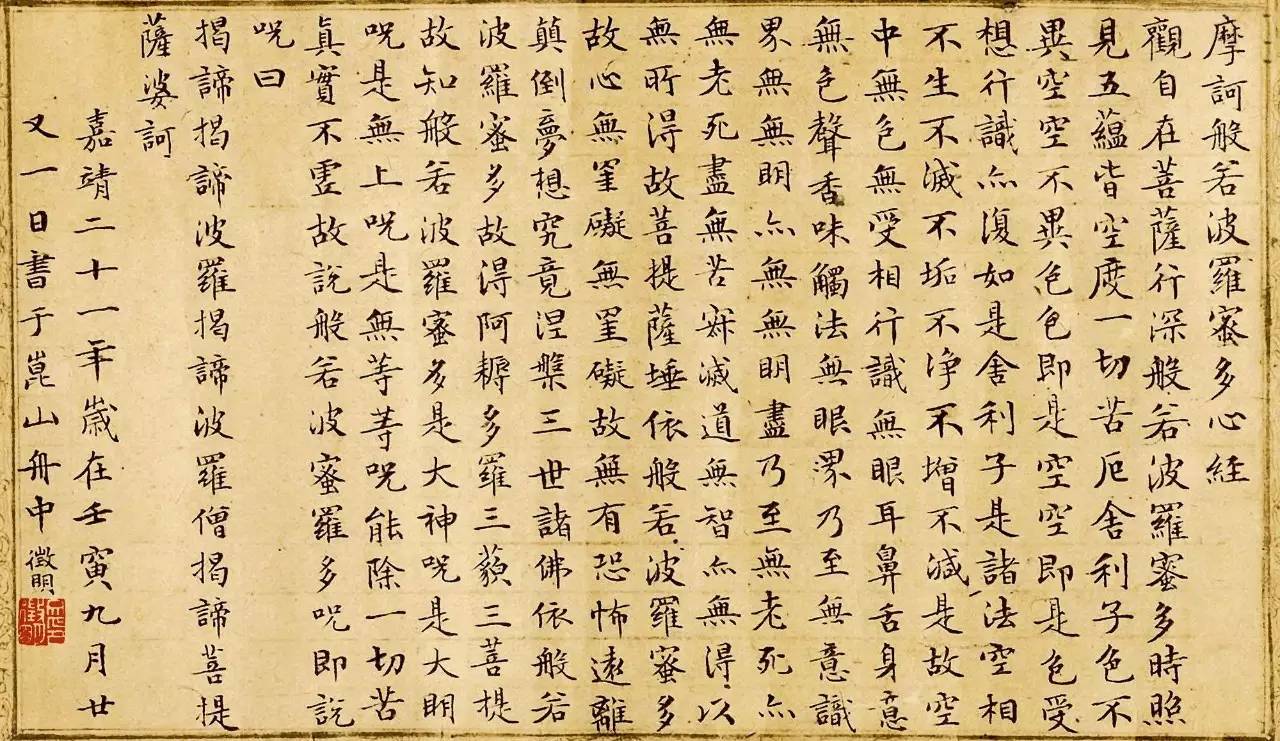 摩訶般若波羅蜜多心経
觀自在菩薩行深般若波羅蜜多時照
見五蘊皆空度一切苦厄舍利子色不
異空空不異色色即是空空即是色受
想行識亦復如是舍利子是諸法空相
不生不滅不垢不净不增不減是故空
中無色無受相行識無眼耳鼻舌身意
無色聲香味觸法無眼界乃至無意識
界無無明亦無無明盡乃至無老死亦
無老死盡無苦寂滅道無智亦無得以
無所得故菩提薩埵依般若波羅蜜多
故心無罣礙無罣礙故無有恐怖遠離
顛倒夢想究竟涅槃三世諸佛依般若
波羅蜜多故得阿耨多羅三藐三菩提
故知般若波羅蜜多是大神咒是大明
咒是無上咒是無等等咒能除一切苦
真實不虛故説般若波蜜羅多咒即説
咒曰
揭諦揭諦波羅揭諦波羅僧揭諦菩提
薩婆訶
嘉靖二十一年歲在壬寅九月廿
又一日書于崑山舟中徵明